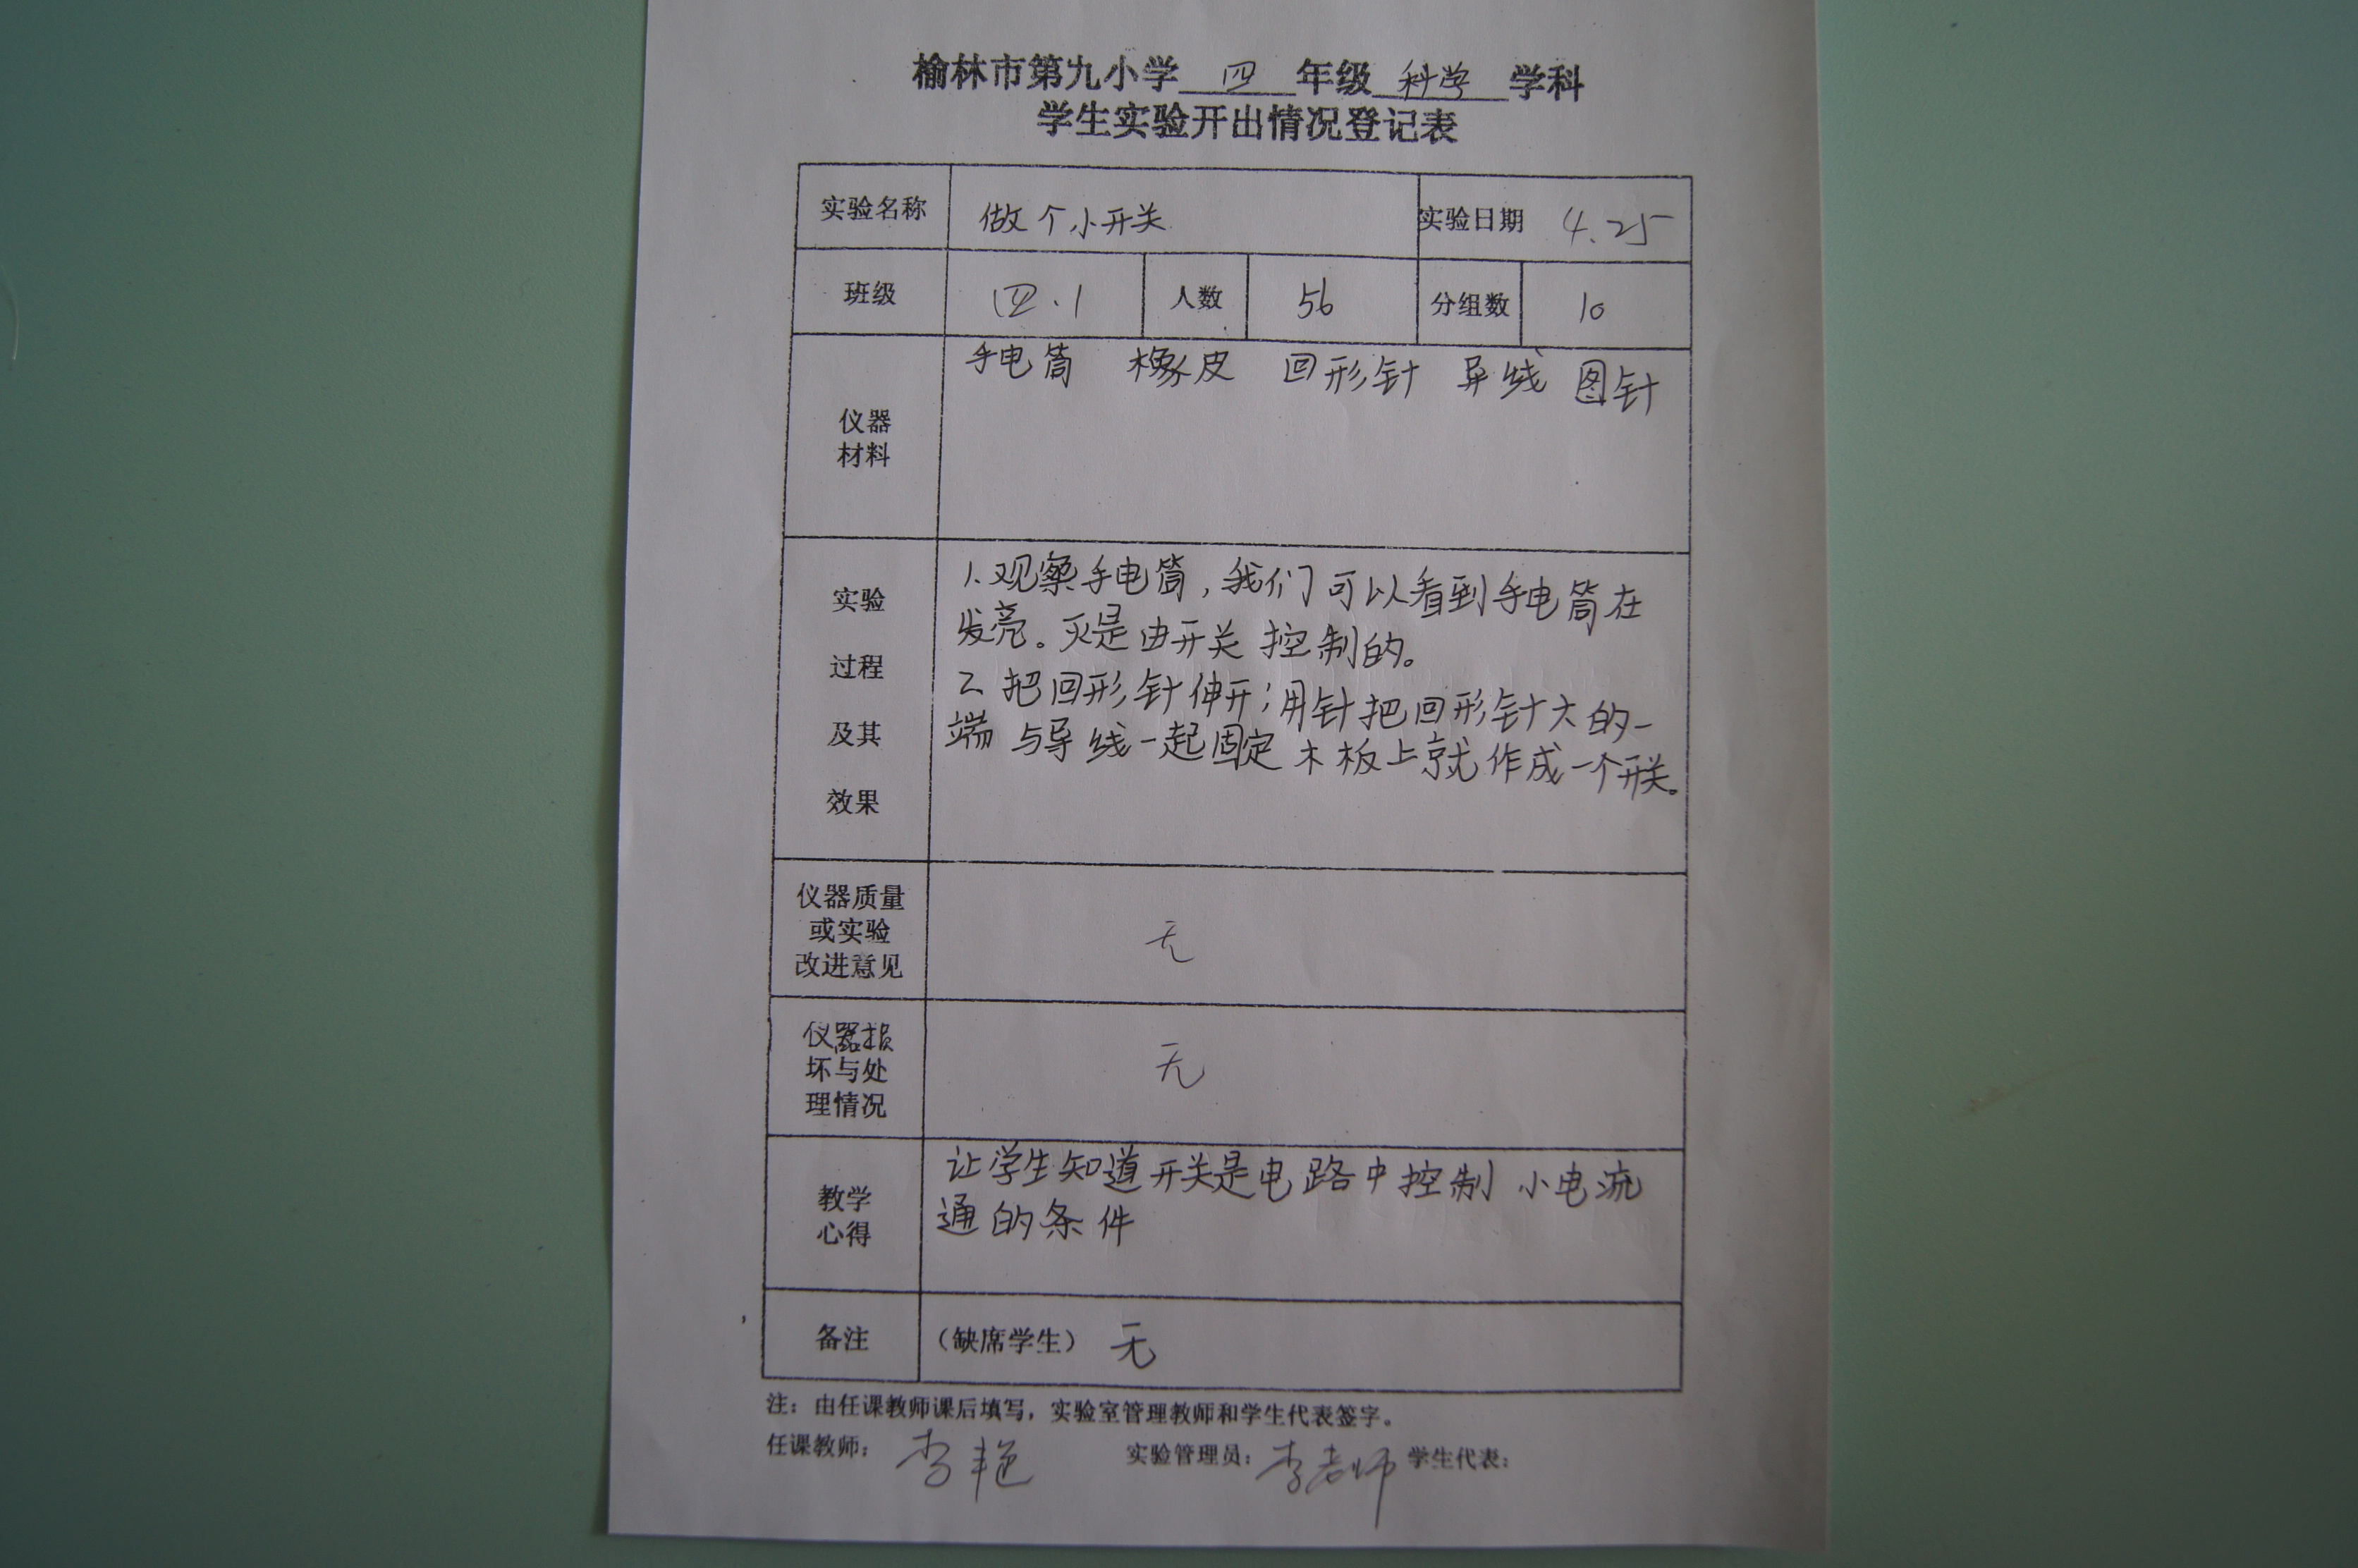 榆林市第九小学 四 年级 科学 学科
学生实验开出情况登记表
实验名称 做个小开关 实验日期 4.25
班级 四.1 人数 56 分组数 10
仪器
材料
手电筒 橡皮 回形针 导线 图钉
实验
过程
及其
效果
1.观察手电筒,我们可以看到手电筒在
发亮。灭是由开关控制的。
2.把回形针伸开;用针把回形针大的一
端与导线一起固定木板上就作成一个开关。
仪器质量
或实验
改进意见
无
仪器损
坏与处
理情况
无
教学
心得
让学生知道开关是电路中控制小电流
通的条件
备注 (缺席学生) 无
注:由任课教师课后填写,实验室管理教师和学生代表签字。
任课教师: 李艳 实验管理员: 李老师 学生代表: